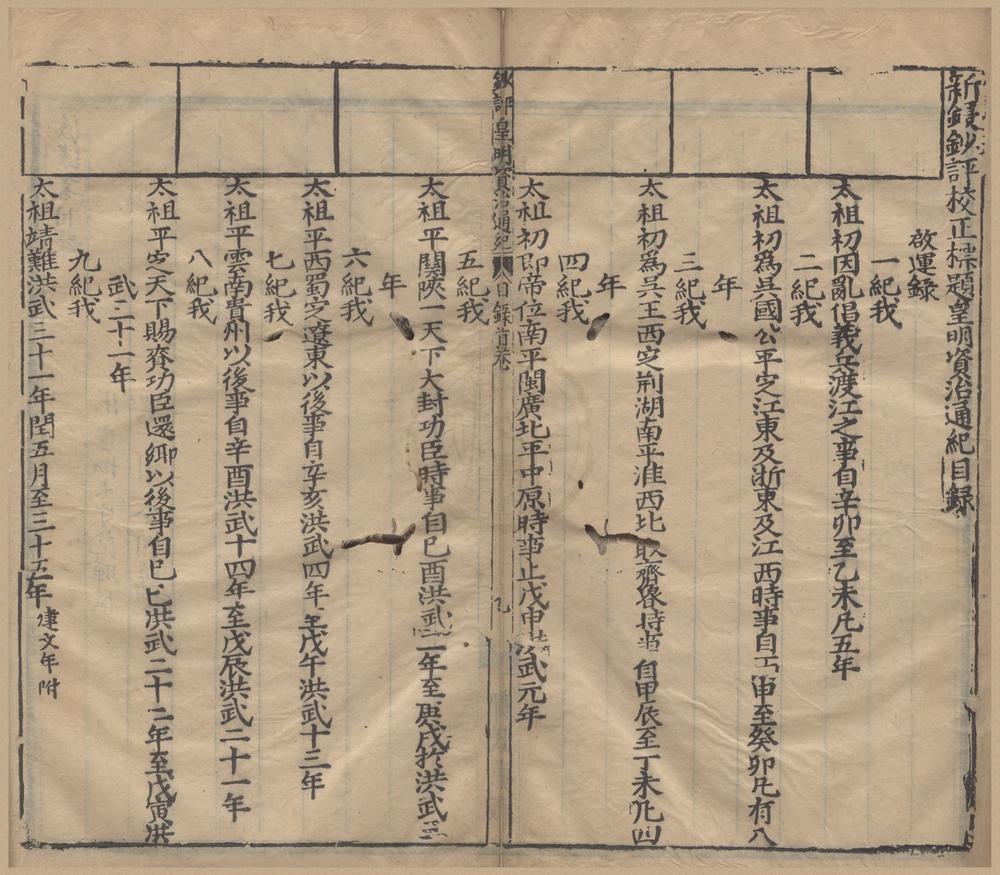 新鋟鈔評校正標題皇明資治通紀目錄
啟運錄
一紀我
太祖初因亂倡義兵渡江之事自辛卯至乙未凡五年
二紀我
太祖初爲吳國公平定江東及浙東及江西時事自丙申至癸卯凡有八
年
三紀我
太祖初爲吳王西定荊湖南平淮西北取齊魯時事自甲辰至丁未凡四
年
四紀我
太祖初即帝位南平閩廣北平中原時事止戊申洪武元年
鈔評皇明資治通紀 目錄首卷 乙
五紀我
太祖平關陝一天下大封功臣時事自己酉洪武二年至庚戌於洪武三
年
六紀我
太祖平西蜀定遼東以後事自辛亥洪武四年至戊午洪武十三年
七紀我
太祖平雲南貴州以後事自辛酉洪武十四年至戊辰洪武二十一年
八紀我
太祖平定天下賜賚功臣還鄉以後事自己巳洪武二十二年至戊寅洪
武三十一年
九紀我
太祖靖難洪武三十一年閏五月至三十五年建文年附